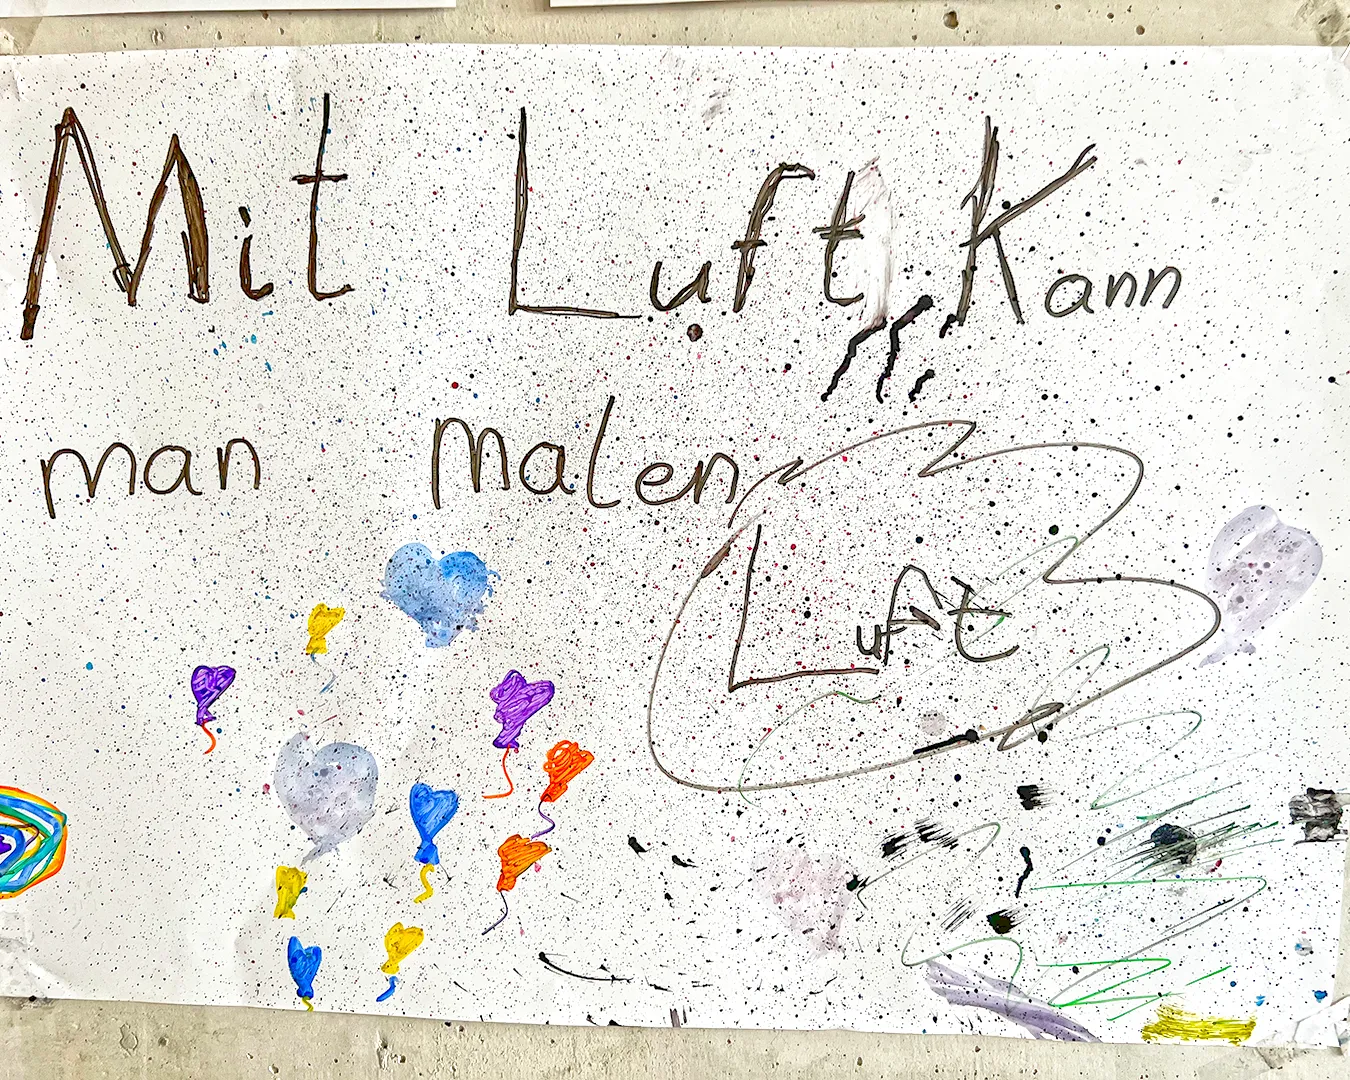 Mit Luft Kann
man malen
Luft